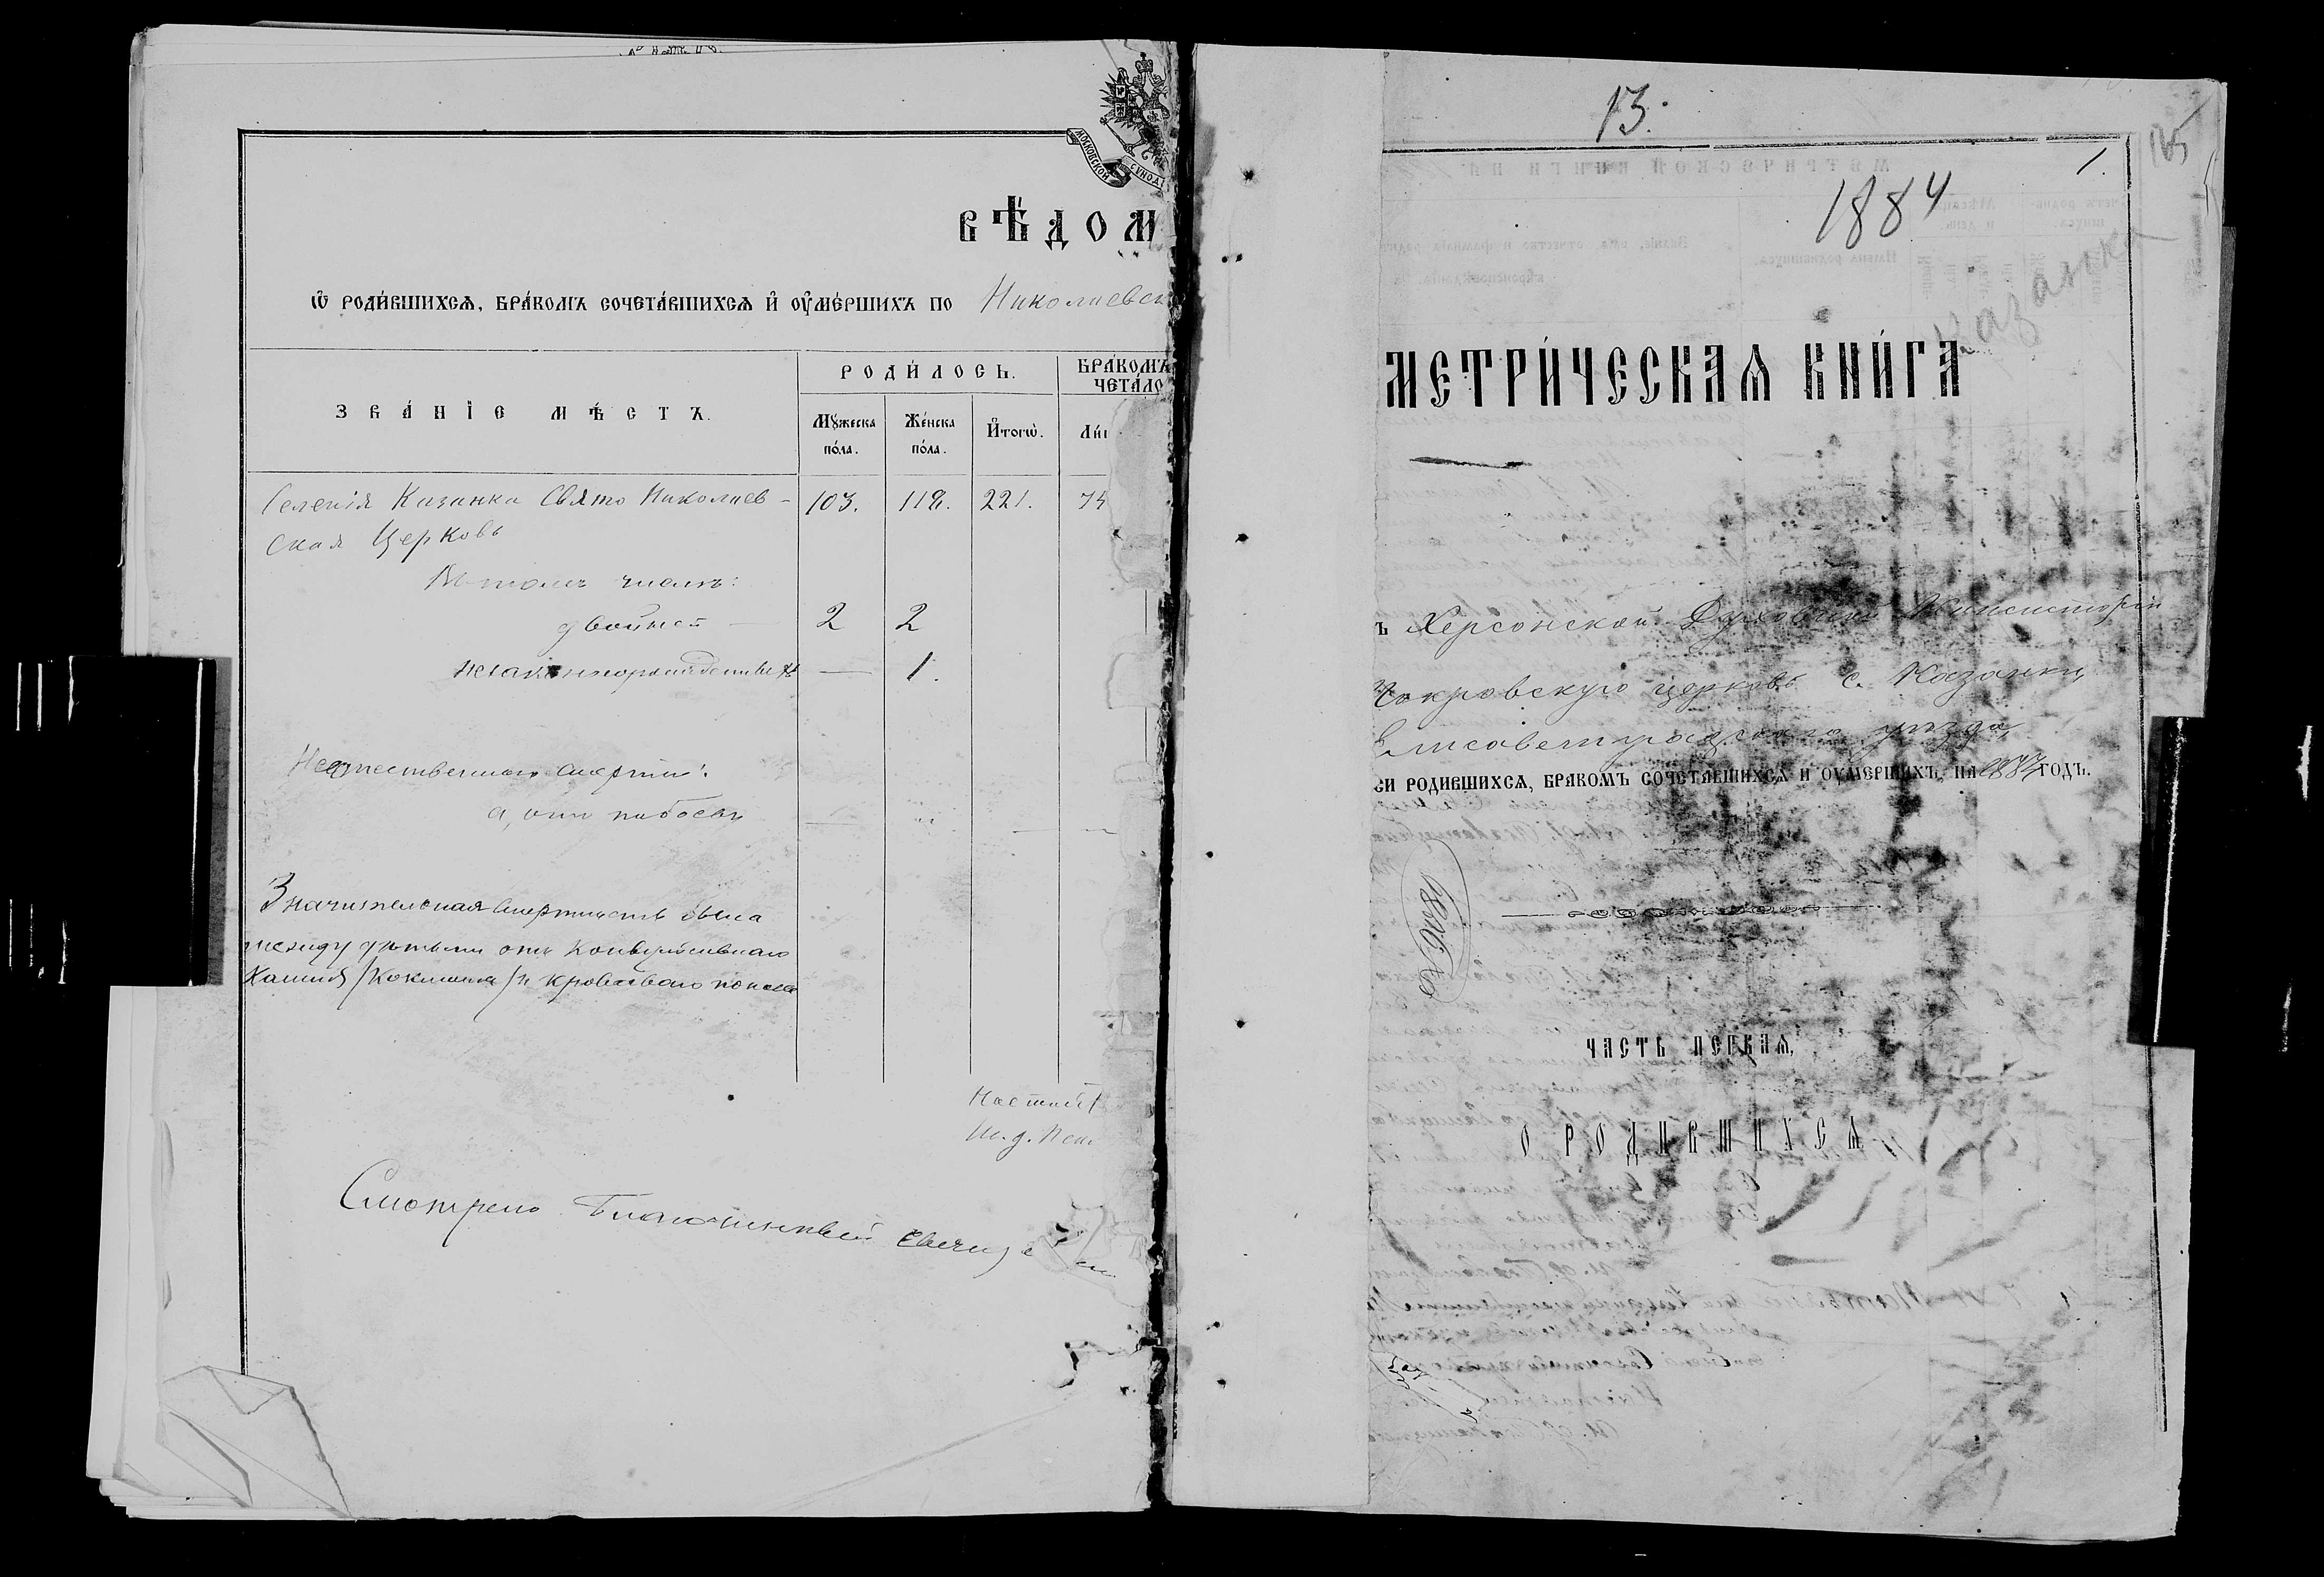 МОСКОВСКОЙ СѴНОД
ВѢДОМ
Ѡ РОДИ́ВШИХСѦ, БРА́КОМЪ СОЧЕТА́ВШИХСѦ И҆ ОУ҆МЕ́РШИХЪ ПО Николаевск
ЗВА́НІЕ МѢ́СТЪ.
РОДИ́ЛОСЬ.
БРА́КОМЪ
ЧЕТА́ЛО
Мꙋ́жеска по́ла.
Же́нска по́ла.
И҆тогѡ̀.
Селенія Казанки Свято Николаев-
ская Церковь
103. 118. 221. 74
Въ томъ числѣ:
двойней — 2 2
незаконнорожденныхъ — 1.
Неестественною смертію:
а, отъ побоевъ
Значительная смертность была
между дѣтьми отъ конвульсивнаго
Кашля /Коклюша/ и кроваваго поноса
Смотрено Благочинный
13.
1.
165
1884
Казанка
МЕТРИ́ЧЕСКАѦ КНИ́ГА
ъ Херсонской Духовной Консисторіи
Покровскую церковь с. Казанки
Елисаветградскаго уѣзда
СИ РОДИВШИХСѦ, БРАКОМЪ СОЧЕТАВШИХСѦ И ОУМЕРШИХЪ, НА 1884 ГОДЪ.
ЧАСТЬ ПЕРВАѦ,
О РОДИВШИХСѦ